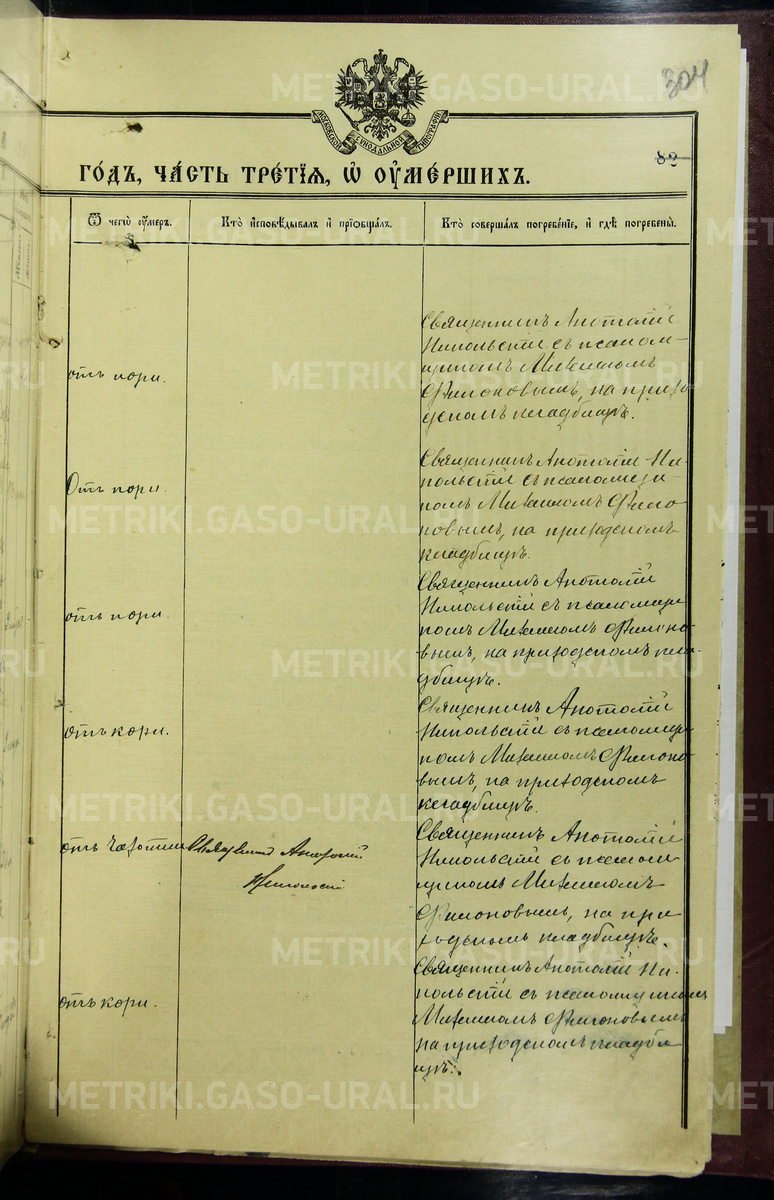 304
МОСКОВСКОЙ СѴНОДАЛЬНОЙ ТИПОГРАФІИ
82
ГО́ДЪ, ЧА́СТЬ ТРЕ́ТІѦ, Ѡ҆ ОУ҆МЕ́РШИХЪ.
Ѿ чегѡ̀ оу҆́меръ.
Кто̀ и҆сповѣ́дывалъ и҆ прїѡбща́лъ.
Кто̀ соверша́лъ погребе́нїе, и҆ гдѣ̀ погребены̀.
отъ кори.
Священникъ Анатолій
Никольскій съ псалом-
щикомъ Михаиломъ
Филоновымъ, на прихо
дскомъ кладбищѣ.
Отъ кори.
Священникъ Анатолій Ни-
кольскій съ псаломщи
комъ Михаиломъ Фило
новымъ, на приходскомъ
кладбищѣ.
отъ кори.
Священникъ Анатолій
Никольскій съ псаломщи
комъ Михаиломъ Филоно-
вымъ, на приходскомъ кла-
дбищѣ.
отъ кори.
Священникъ Анатолій
Никольскій съ псаломщи
комъ Михаиломъ Филоно
вымъ, на приходскомъ
кладбищѣ.
отъ чахотки
Священникъ Анатолій
Никольскій
Священникъ Анатолій
Никольскій съ псалом
щикомъ Михаиломъ
Филоновымъ, на при
ходскомъ кладбищѣ.
отъ кори.
Священникъ Анатолій Ни-
кольскій съ псаломщикомъ
Михаиломъ Филоновымъ
на приходскомъ кладби
щѣ.
METRIKI.GASO-URAL.RU